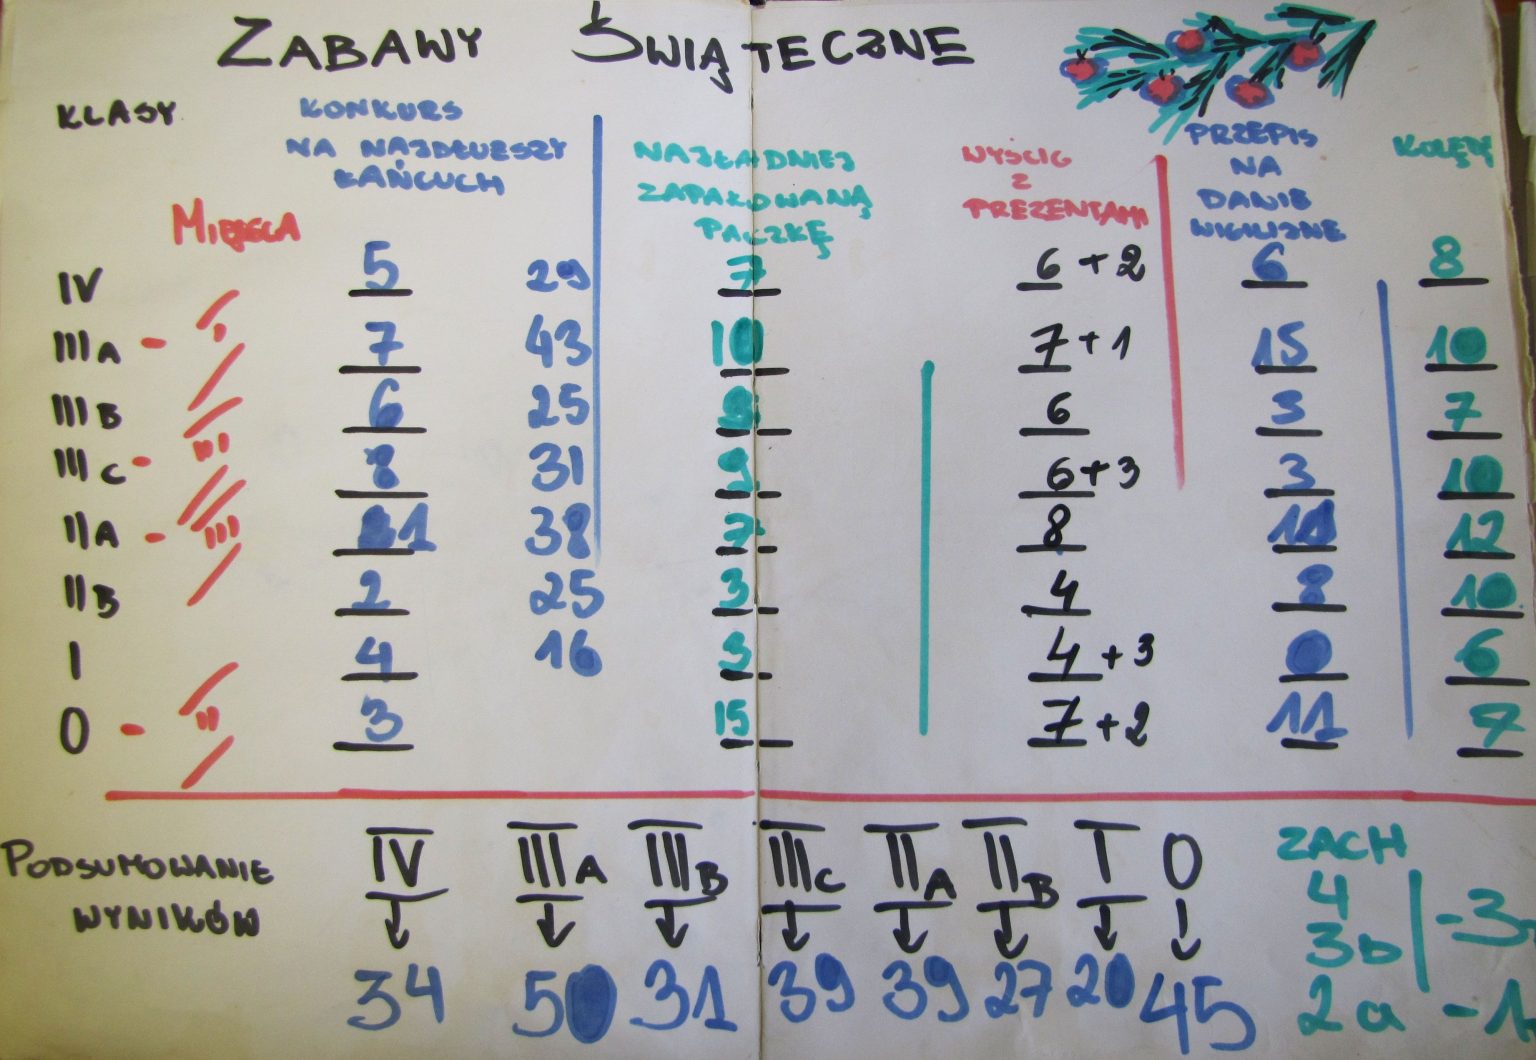 ZABAWY ŚWIĄTECZNE
KLASY
KONKURS
NA NAJDŁUŻSZY
ŁAŃCUCH
NAJŁADNIEJ
ZAPAKOWANĄ
PACZKĘ
WYŚCIG
Z
PREZENTAMI
PRZEPIS
NA
DANIE
WIGILIJNE
KOLĘDY
MIEJSCA
IV 5 29 7 6 + 2 6 8
IIIA - I 7 43 10 7 + 1 15 10
IIIB 6 25 6 3 7
IIIC - III 8 31 9 6 + 3 3 10
IIA - III 38 7 8 12
IIB 2 25 3 4 8 10
I 4 16 3 4 + 3 0 6
0 - II 3 15 7 + 2 11 7
PODSUMOWANIE
WYNIKÓW
IV IIIA IIIB IIIC IIA IIB I 0
34 50 31 39 39 27 20 45
ZACH
4
3b -3
2a -1